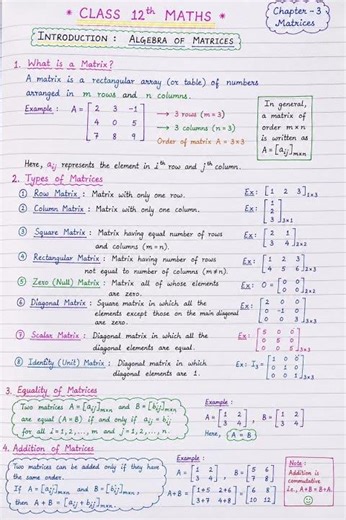 * CLASS 12th MATHS *
Chapter - 3
Matrices
INTRODUCTION : ALGEBRA OF MATRICES
1. What is a Matrix?
A matrix is a rectangular array (or table) of numbers
arranged in m rows and n columns.
Example : A = [ 2 3 -1
4 0 5
7 8 9 ]
→ 3 rows (m = 3)
→ 3 columns (n = 3)
Order of matrix A = 3×3
In general,
a matrix of
order m×n
is written as
A = [aij]m×n
Here, aij represents the element in ith row and jth column.
2. Types of Matrices
① Row Matrix : Matrix with only one row. Ex: [ 1 2 3 ]1×3
② Column Matrix : Matrix with only one column. Ex: [ 1
2
3 ]3×1
③ Square Matrix : Matrix having equal number of rows
and columns (m = n).
Ex: [ 2 1
3 4 ]2×2
④ Rectangular Matrix : Matrix having number of rows
not equal to number of columns (m ≠ n).
Ex: [ 1 2 3
4 5 6 ]2×3
⑤ Zero (Null) Matrix : Matrix all of whose elements
are zero.
Ex: O = [ 0 0
0 0 ]2×2
⑥ Diagonal Matrix : Square matrix in which all the
elements except those on the main diagonal
are zero.
Ex: [ 2 0 0
0 -1 0
0 0 3 ]3×3
⑦ Scalar Matrix : Diagonal matrix in which all the
diagonal elements are equal.
Ex: [ 5 0 0
0 5 0
0 0 5 ]3×3
⑧ Identity (Unit) Matrix : Diagonal matrix in which
diagonal elements are 1.
Ex: I3 = [ 1 0 0
0 1 0
0 0 1 ]3×3
3. Equality of Matrices
Two matrices A = [aij]m×n and B = [bij]m×n
are equal (A = B) if and only if aij = bij
for all i = 1, 2, ..., m and j = 1, 2, ..., n.
Example :
A = [ 1 2
3 4 ], B = [ 1 2
3 4 ]
Here, A = B
4. Addition of Matrices
Two matrices can be added only if they have
the same order.
If A = [aij]m×n and B = [bij]m×n
then A + B = [aij + bij]m×n.
Example :
A = [ 1 2
3 4 ], B = [ 5 6
7 8 ]
A + B = [ 1+5 2+6
3+7 4+8 ] = [ 6 8
10 12 ]
Note :
Addition is
commutative
i.e., A+B = B+A.